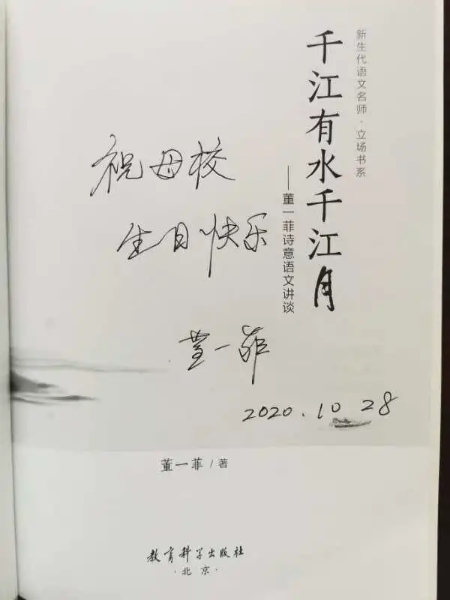 新生代语文名师·立场书系
千江有水千江月
——董一菲诗意语文讲谈
祝母校
生日快乐
董一菲
2020.10.28
董一菲/著
教育科学出版社
·北京·